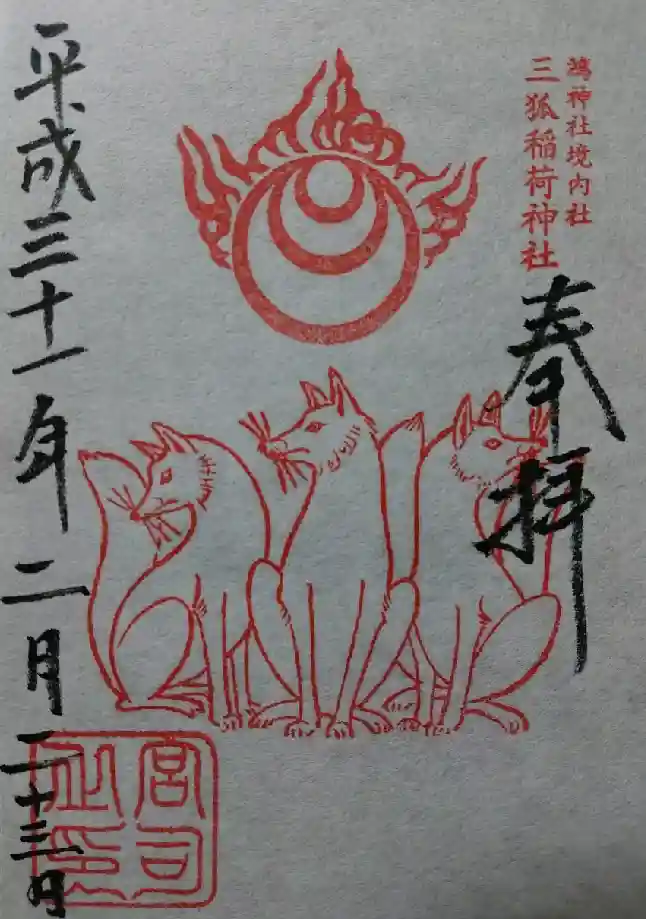 鴻神社境内社
三狐稲荷神社
奉拝
平成三十一年二月二十三日
宮司之印